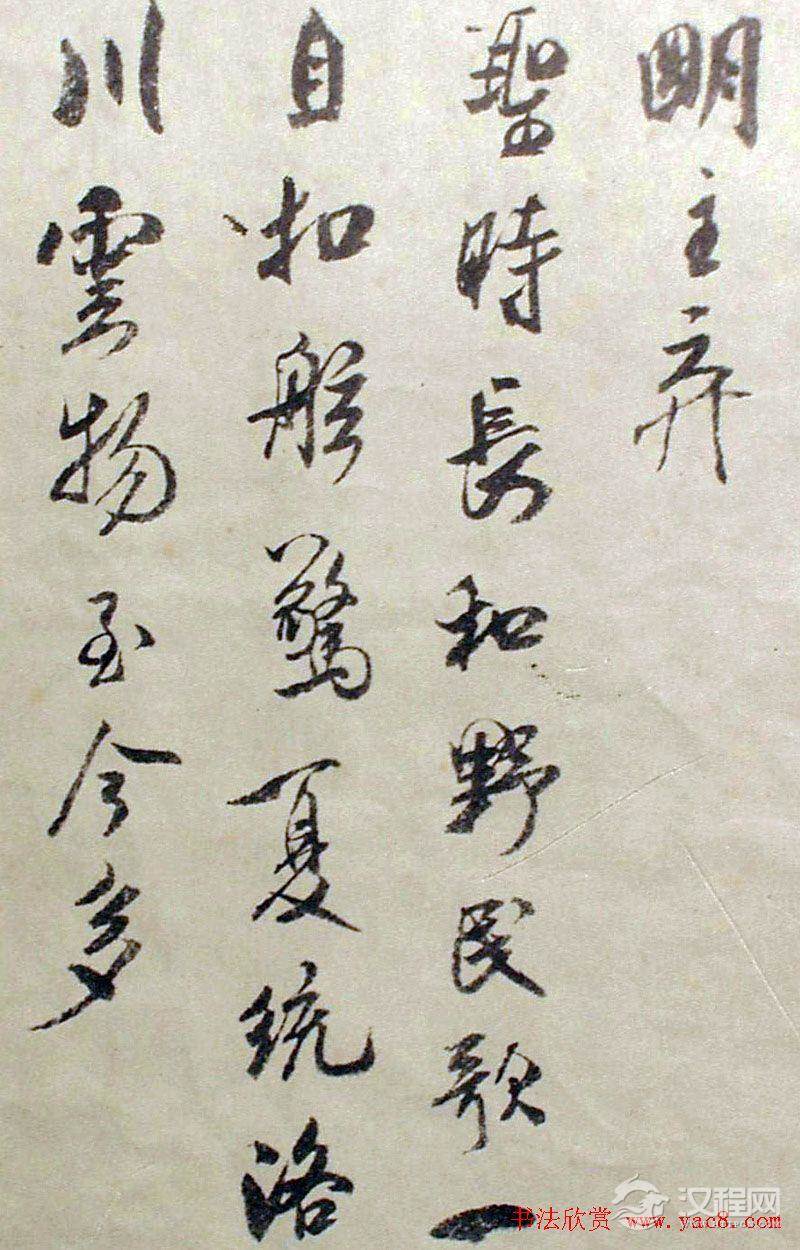 明主弃
聖時長和野民歌一
自扣舷驚夏統洛
川雲物至今多
汉程网
书法欣赏 www.yac8.com